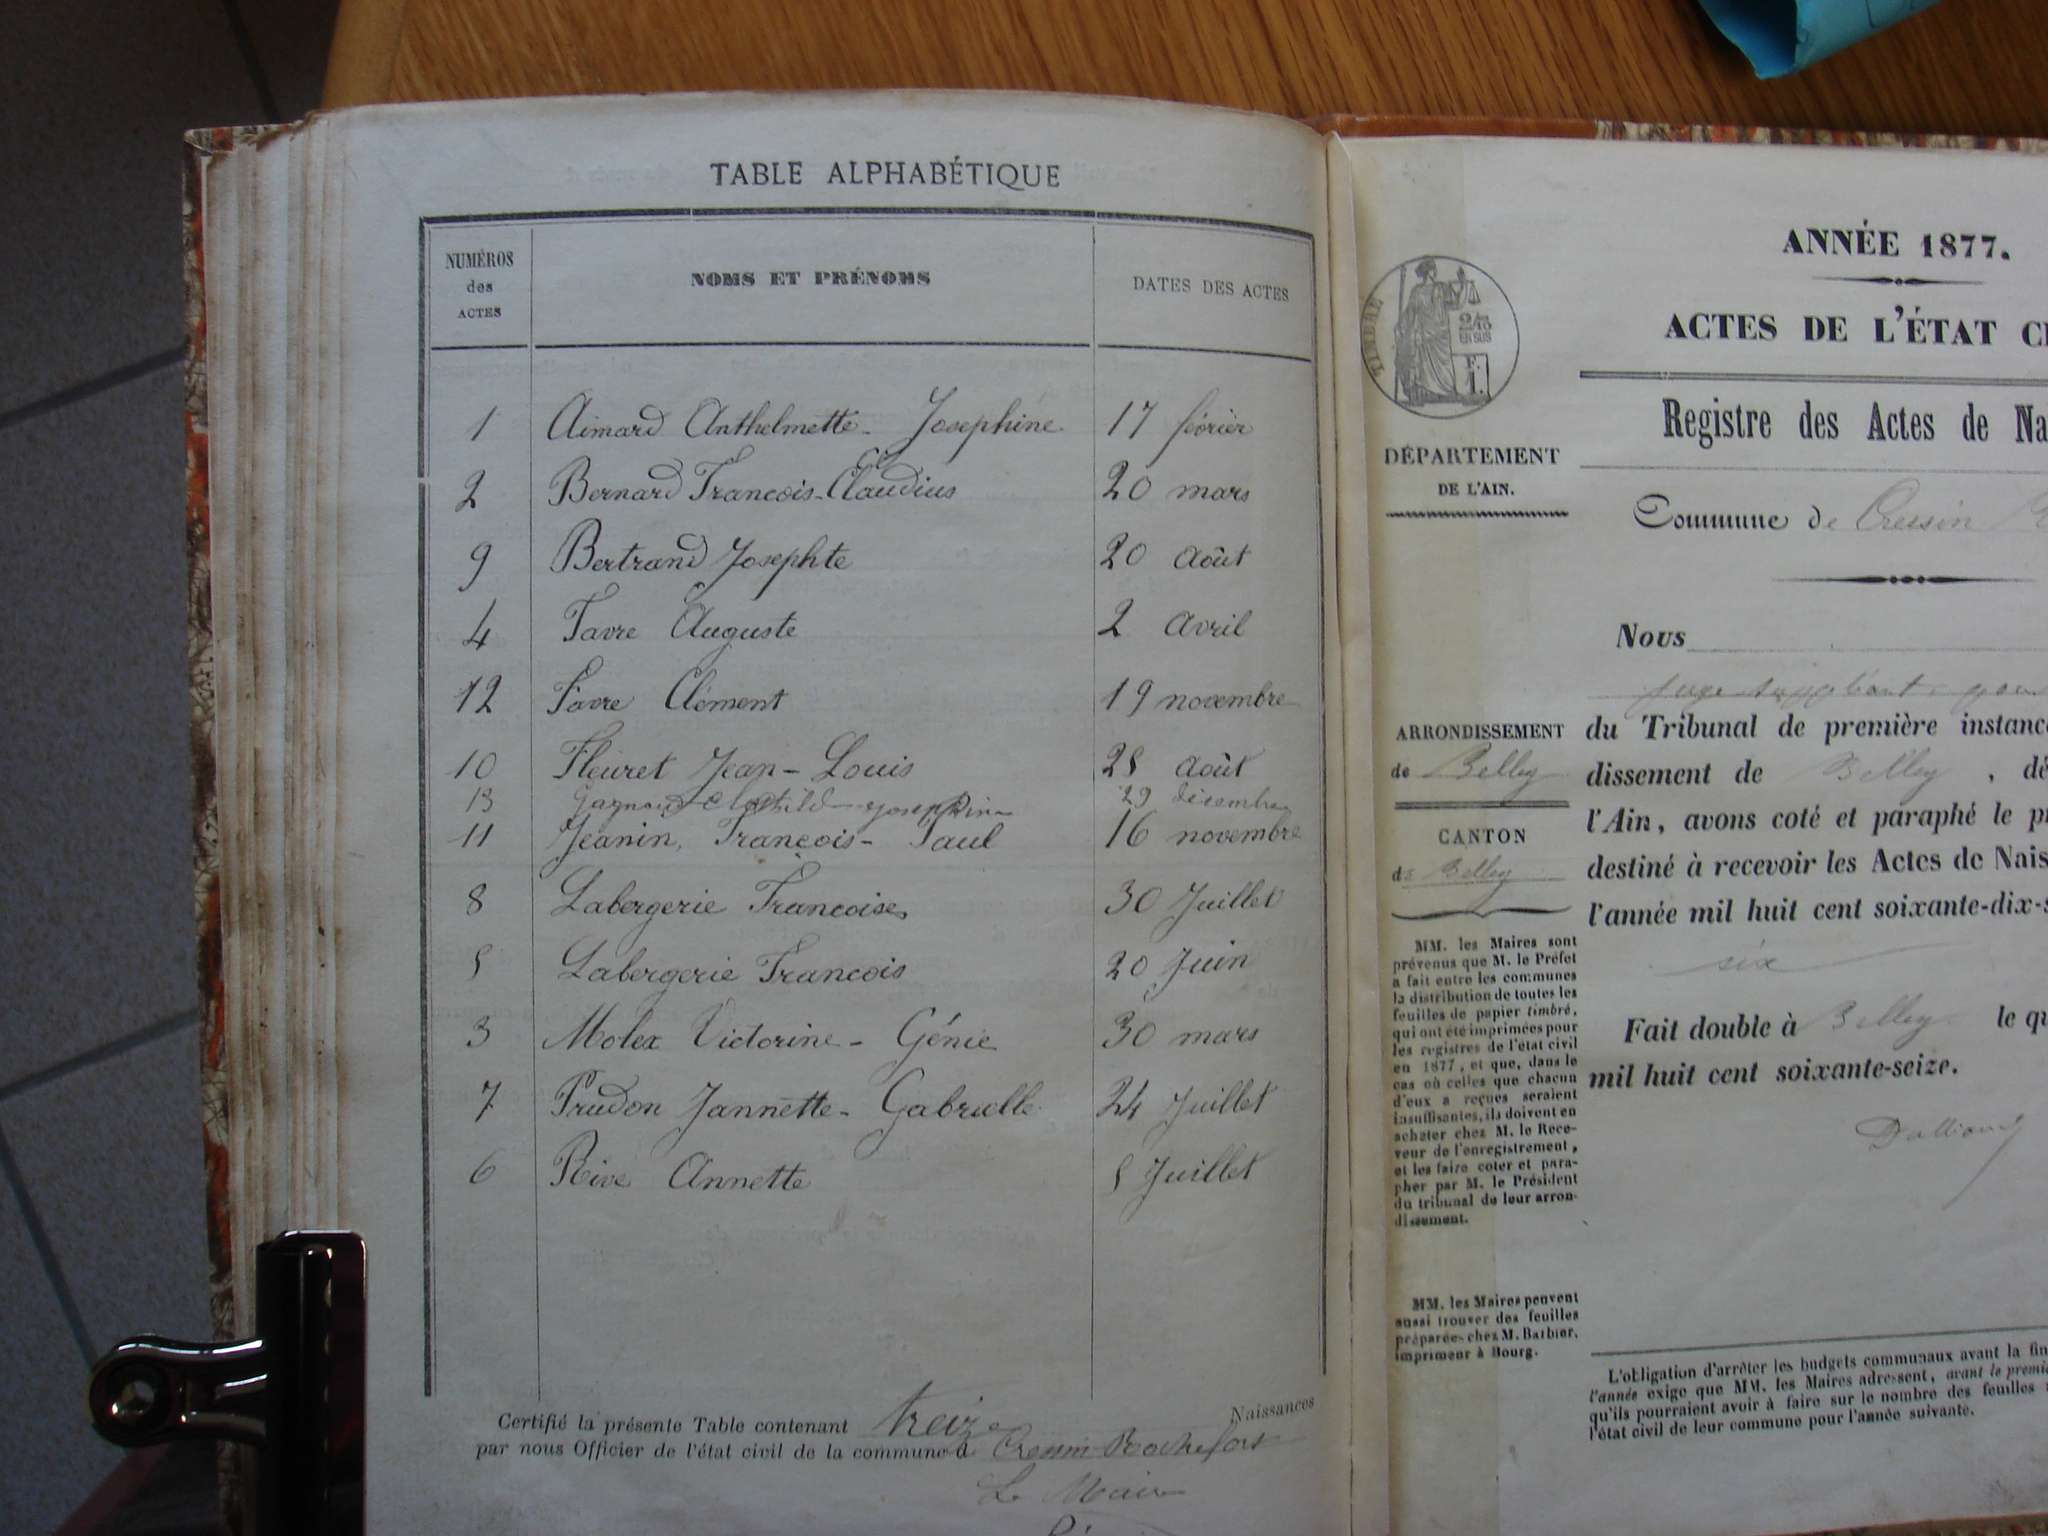 TABLE ALPHABÉTIQUE
NUMÉROS des ACTES
NOMS ET PRÉNOMS
DATES DES ACTES
1 Aimard Anthelmette- Josephine 17 février
2 Bernard Francois-Claudius 20 mars
9 Bertrand Josephte 20 Août
4 Favre Auguste 2 Avril
12 Favre Clément 19 novembre
10 Fleuret Jean-Louis 28 Août
13 29 décembre
11 Jeanin, François-Paul 16 novembre
8 Labergerie Francoise 30 Juillet
5 Labergerie Francois 20 Juin
3 Molex Victorine-Génie 30 mars
7 Prudon Jannette-Gabrielle 24 Juillet
6 Rive Annette 5 Juillet
Certifié la présente Table contenant treize Naissances
par nous Officier de l'état civil de la commune d Cressin-Rochefort
Le Maire
ANNÉE 1877.
ACTES DE L'ÉTAT
TIMBRE
2/10
EN SUS
Registre des Actes de
DÉPARTEMENT
DE L'AIN.
Commune de Cressin
Nous
juge suppléant
ARRONDISSEMENT
de Belley
du Tribunal de première
dissement de Belley,
l'Ain, avons coté et paraphé le
CANTON
de Belley
destiné à recevoir les Actes de
l'année mil huit cent soixante-dix-
six
Fait double à Belley le
mil huit cent soixante-seize.
MM. les Maires sont
prévenus que M. le Préfet
a fait entre les communes
la distribution de toutes les
feuilles de papier timbré,
qui ont été imprimées pour
les registres de l'état civil
en 1877, et que, dans le
cas où celles que chacun
d'eux a reçues seraient
insuffisantes, ils doivent en
acheter chez M. le Rece-
veur de l'enregistrement,
et les faire coter et para-
pher par M. le Président
du tribunal de leur arron-
dissement.
MM. les Maires peuvent
aussi trouver des feuilles
préparées chez M. Barbier,
imprimeur à Bourg.
L'obligation d'arrêter les budgets communaux avant la fin
l'année exige que MM. les Maires adressent, avant le
qu'ils pourraient avoir à faire sur le nombre des feuilles
l'état civil de leur commune pour l'année suivante.